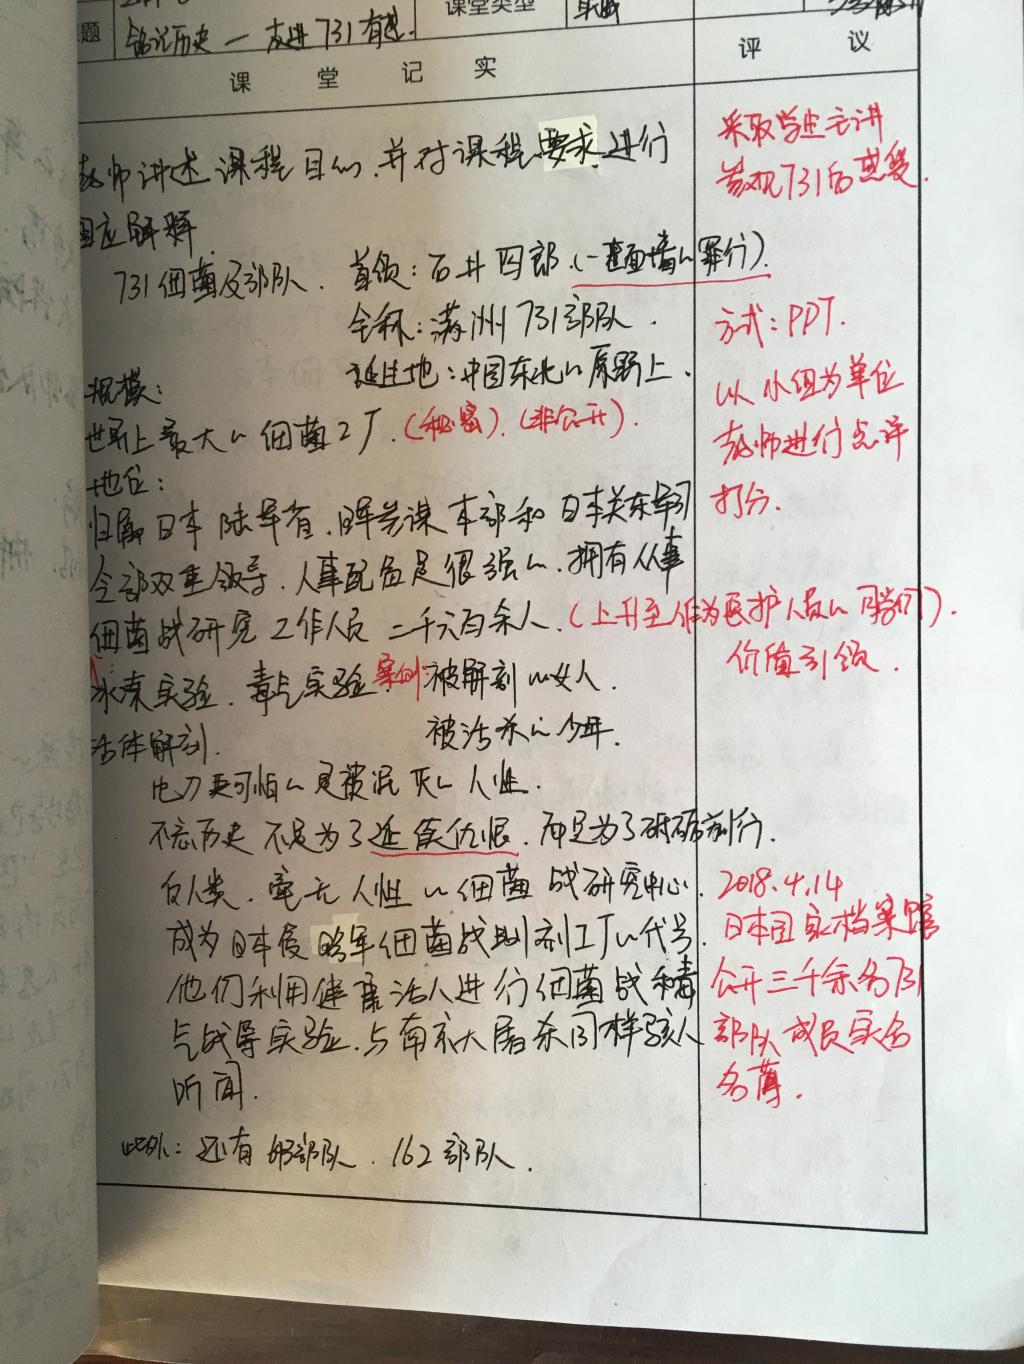 课堂类型
题
铭记历史—走进731有感.
课堂记实
评议
教师讲述课程目的,并对课程要求进行
相应解释
731细菌及部队. 首领:石井四郎.(一整面墙的罪行).
全称:满洲731部队.
诞生地:中国东北的原野上.
规模:
世界上最大的细菌工厂.(秘密).(非公开).
地位:
归属日本陆军省,陆军参谋本部和日本关东军司
令部双重领导.人事配备是很强的.拥有从事
细菌战研究工作人员二千六百余人.(上升至作为医护人员的).
冰冻实验.毒气实验. 案例: 被解剖的女人.
活体解剖. 被活杀的少年.
比刀更可怕的是被泯灭的人性.
不忘历史不是为了延续仇恨.而是为了砥砺前行.
反人类.毫无人性的细菌战研究中心.
成为日本侵略军细菌战制剂工厂的代号.
他们利用健康活人进行细菌战和毒
气战等实验.与南京大屠杀同样骇人
听闻.
此外:还有 部队.162部队.
采取学生主讲
731的感受.
方式:PPT.
以小组为单位
教师进行点评
打分.
价值引领.
2018.4.14
日本国家档案馆
公开三千余名731
部队成员实名
名薄.